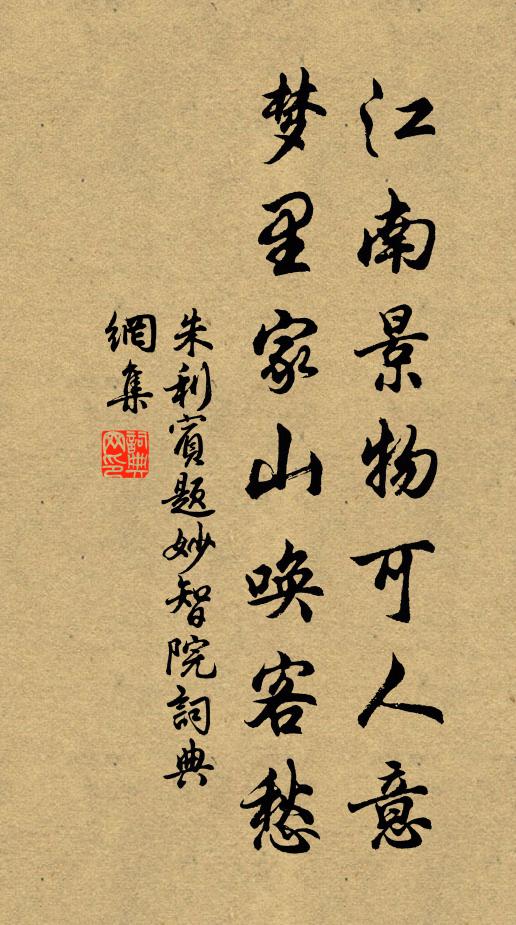 江南景物可人意
梦里家山唤客愁
朱利賓题妙智院詞典
網集
詞典网印